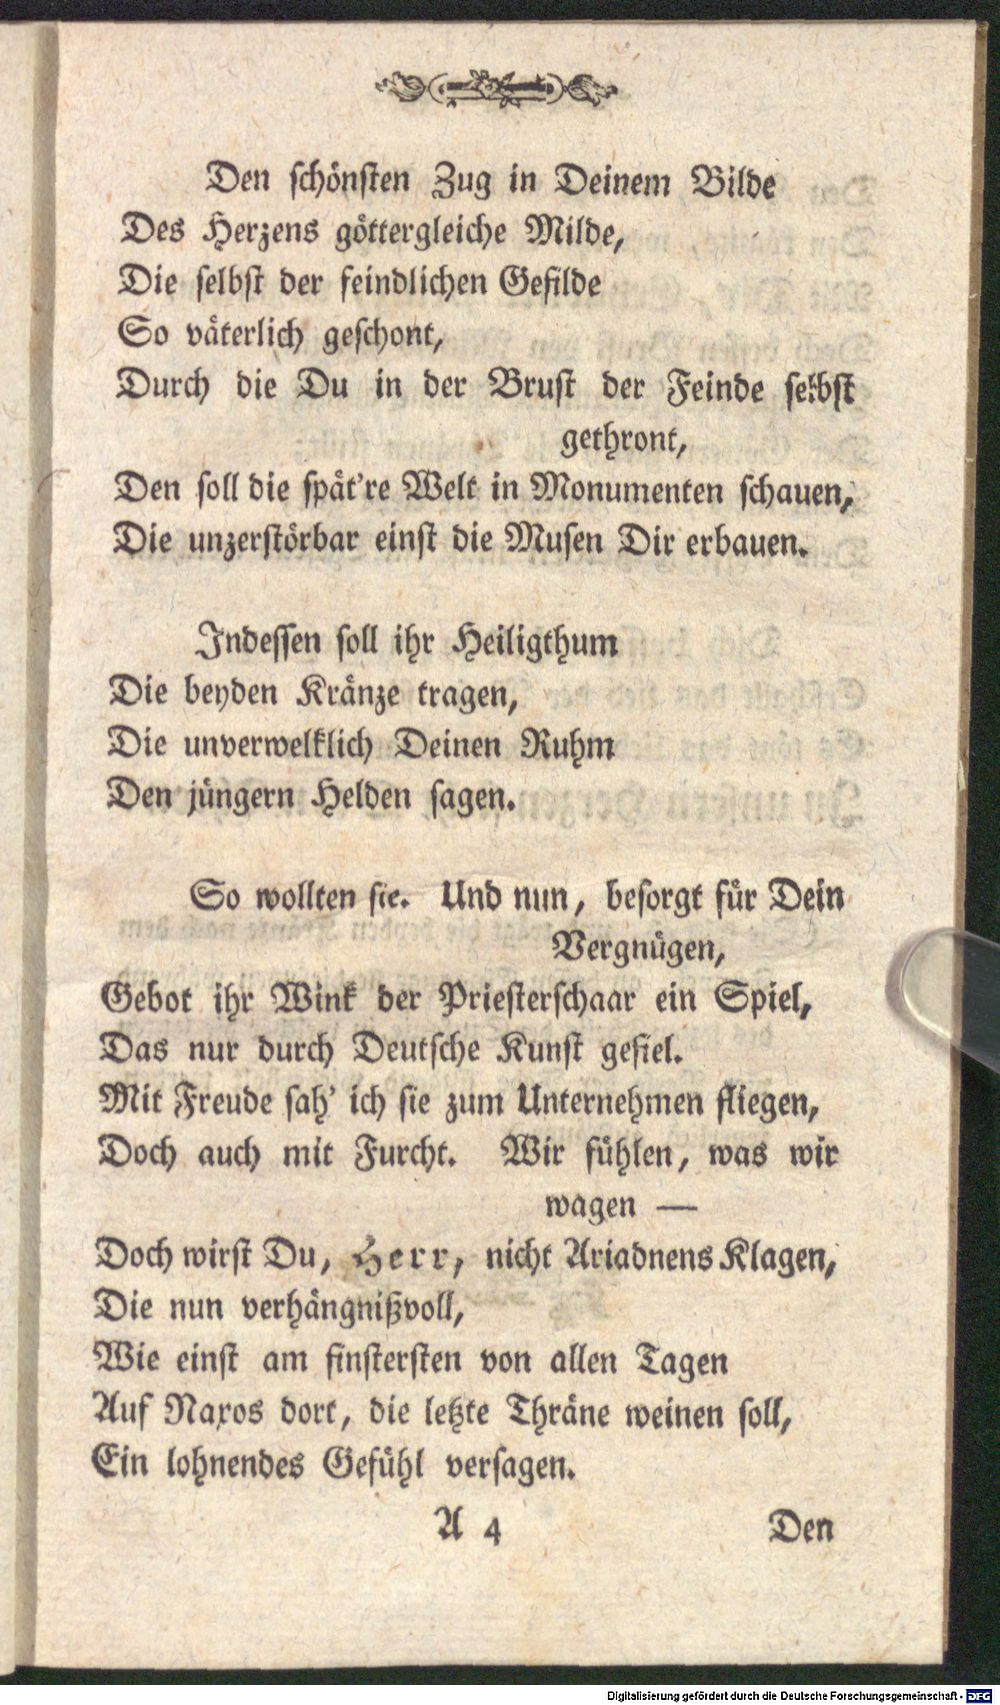 Den schönsten Zug in Deinem Bilde
Des Herzens göttergleiche Milde,
Die selbst der feindlichen Gefilde
So väterlich geschont,
Durch die Du in der Brust der Feinde selbst
gethront,
Den soll die spät're Welt in Monumenten schauen,
Die unzerstörbar einst die Musen Dir erbauen.
Indessen soll ihr Heiligthum
Die beyden Kränze tragen,
Die unverwelklich Deinen Ruhm
Den jüngern Helden sagen.
So wollten sie. Und nun, besorgt für Dein
Vergnügen,
Gebot ihr Wink der Priesterschaar ein Spiel,
Das nur durch Deutsche Kunst gefiel.
Mit Freude sah' ich sie zum Unternehmen fliegen,
Doch auch mit Furcht. Wir fühlen, was wir
wagen —
Doch wirst Du, Herr, nicht Ariadnens Klagen,
Die nun verhängnißvoll,
Wie einst am finstersten von allen Tagen
Auf Naxos dort, die letzte Thräne weinen soll,
Ein lohnendes Gefühl versagen.
A 4 Den
Digitalisierung gefördert durch die Deutsche Forschungsgemeinschaft - DFG